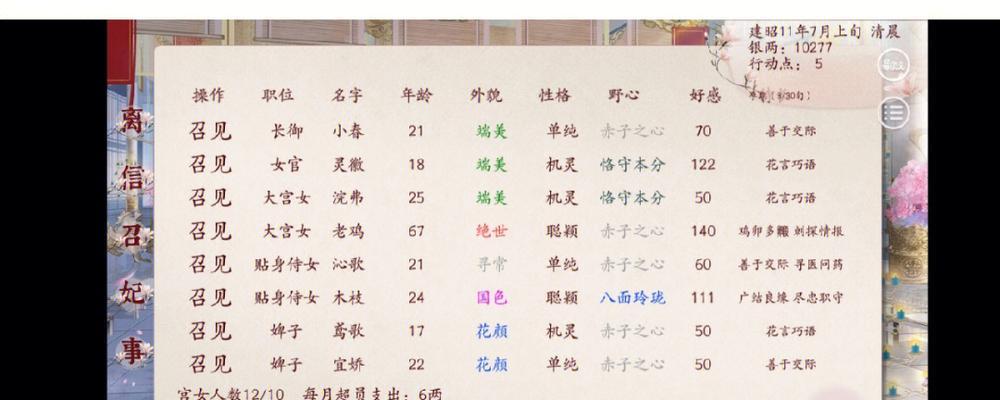 建昭11年7月上旬 清晨
银两：10277
行动点：5
操作 职位 名字 年龄 外貌 性格 野心 好感
召见 长御 小春 21 端美 单纯 赤子之心 70 善于交际
召见 女官 灵徽 18 端美 机灵 恪守本分 122 花言巧语
召见 大宫女 浣弗 25 端美 机灵 恪守本分 50 花言巧语
召见 大宫女 老鸡 67 绝世 聪颖 赤子之心 140 鸡卵多 刺探情报
召见 贴身侍女 沁歌 21 寻常 单纯 赤子之心 60 善于交际 寻医问药
召见 贴身侍女 木枝 24 国色 聪颖 八面玲珑 111 广结良缘 尽忠职守
召见 婢子 鸢歌 17 花颜 机灵 赤子之心 50 花言巧语
召见 婢子 宜娇 22 花颜 单纯 赤子之心 50 善于交际
宫女人数12/10 每月超员支出：6两
离
信
召
妃
事